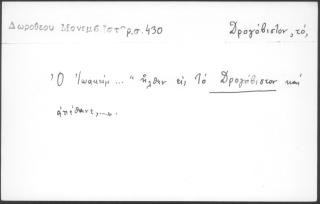 Δωροθεου Μονεμβ Ιστορ,σ.430
Δρογόβιστον,τό,
Ὁ Ἰωακεὶμ ... " ἦλθεν εἰς τὸ Δρογόβιστον καὶ
ἀπέθανε,....